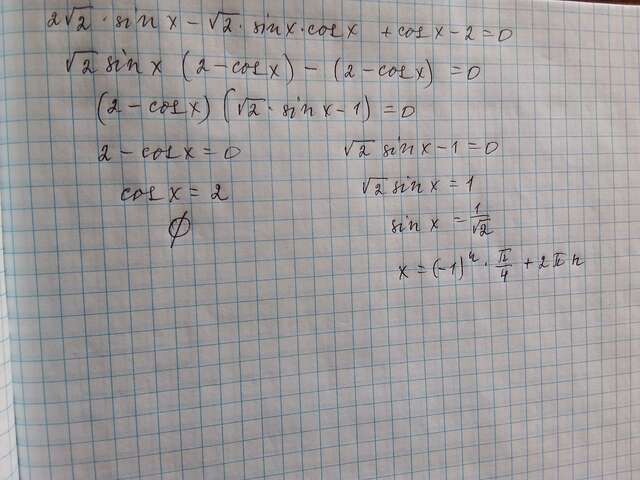 2√2 · sin x − √2 · sin x · cos x + cos x − 2 = 0
√2 sin x (2 − cos x) − (2 − cos x) = 0
(2 − cos x) (√2 · sin x − 1) = 0
2 − cos x = 0 √2 sin x − 1 = 0
cos x = 2 √2 sin x = 1
∅ sin x = 1/√2
x = (−1)^n · π/4 + 2πn